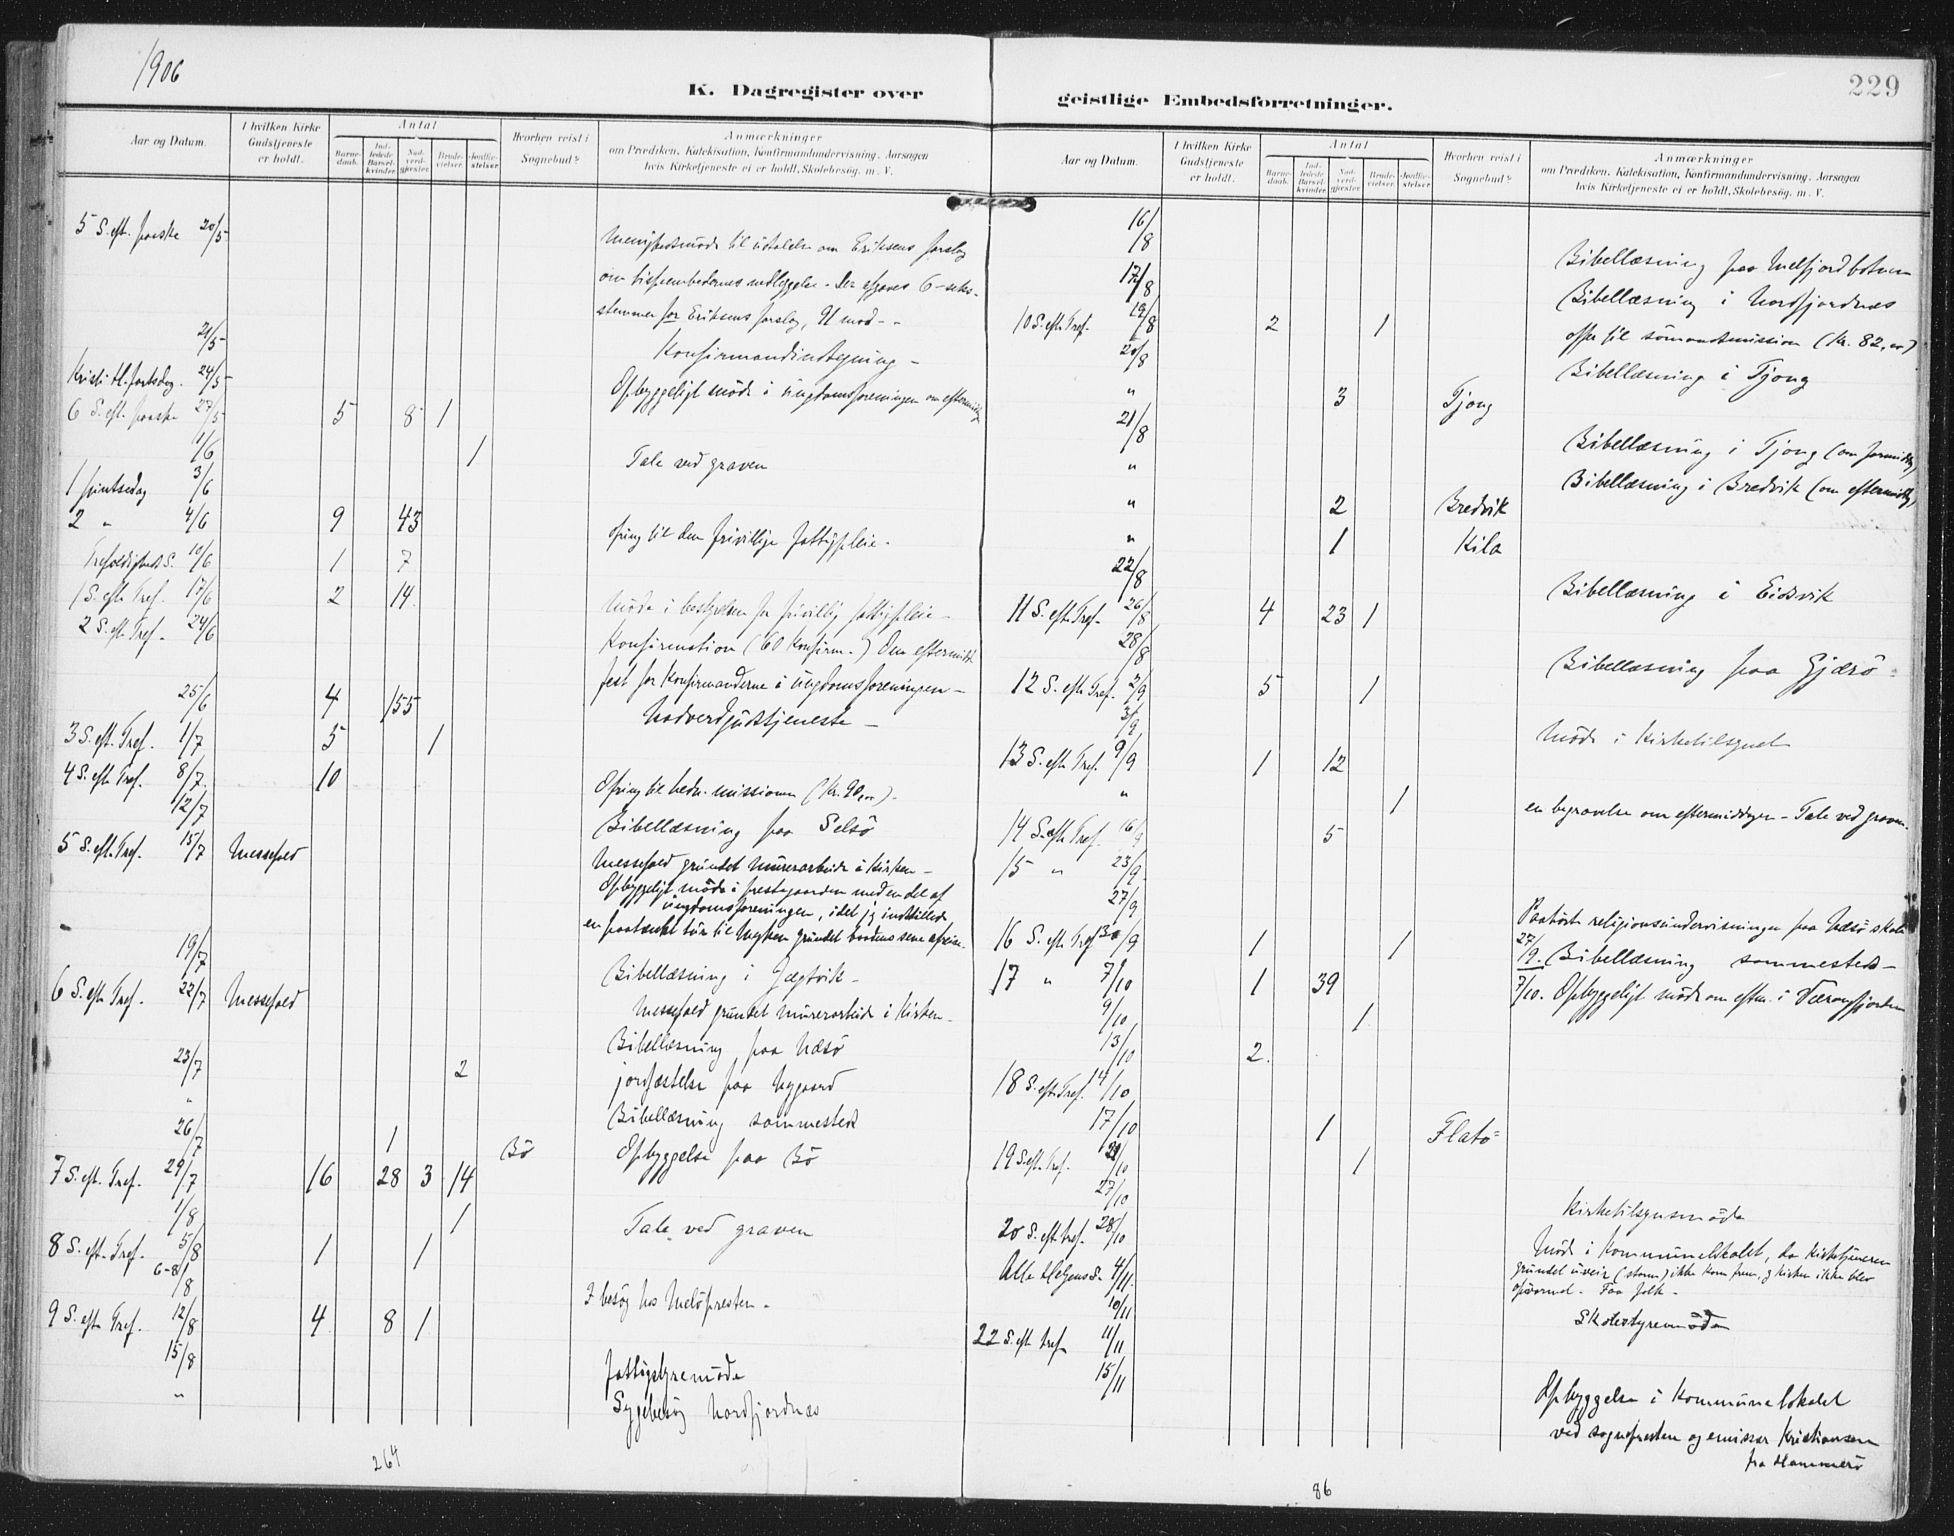 1906
K. Dagregister over
Aar og Datum.
I hvilken Kirke Gudstjeneste er holdt.
Antal
Barnedaab.
Indledede Barselkvinder.
Nadverdgjester.
Brudevielser.
Jordfæstelser
Hvorhen reist i Sognebud?
Anmærkninger
om Prædiken, Katekisation, Konfirmandundervisning. Aarsagen
hvis Kirketjeneste ei er holdt, Skolebesøg. m. V.
5 S. eft. paaske 20/5 Menighedsmöde til udtalelse om Eriksens forslag
om bispeembedernes nedlæggelse. Der afgaves 6 - seks -
stemmer for Eriksens forslag, 91 mod - -
21/5 Konfirmandindtegning -
Kristi H. fartsdag. 24/5 Opbyggeligt möde i ungdomsforeningen om eftermiddag
6 S. eft. paaske 27/5 5 8 1
1/6 1 Tale ved graven
1 pintsedag 3/6
2 " 4/6 9 43 Ofring til den frivillige fattigpleie.
Trefoldigheds S. 10/6 1 7
1 S. eft. Tref. 17/6 2 14 Möde i bestyrelsen for frivillig fattigpleie -
2 S. eft. Tref. 24/6 Konfirmation (60 Konfirm.) Om eftermidd
fest for Konfirmanderne i ungdomsforeningen -
25/6 4 155 Nadverdgudstjeneste -
3 S. eft. Tref. 1/7 5 1
4 S. eft. Tref. 8/7 10 Ofring til hedn. missionen (Kr. 90,00).
12/7 Bibellæsning paa Selsö
5 S. eft. Tref. 15/7 Messefald Messefald grundet murerarbeide i Kirken -
Opbyggeligt möde i prestegaarden med en del af
ungdomsforeningen, idet jeg indstillede
en paatænkt tur til Myken grundet baadens sene afreise.
19/7 Bibellæsning i Jægtvik -
6 S. eft. Tref. 22/7 Messefald Messefald grundet murerarbeide i Kirken -
Bibellæsning paa Næsö
23/7 2 jordfæstelse paa Nygaard
" Bibellæsning sammesteds
26/7 1 Bö Opbyggelse paa Bö
7 S. eft. Tref. 29/7 16 28 3 14
1/8 1 Tale ved graven
8 S. eft. Tref. 5/8 1 1
6-8/8 I besög hos Melöpresten.
9 S. eft. Tref. 12/8 4 8 1
15/8 Fattigstyremöde
" Sygebesög Nordfjordnæs
264
229
geistlige Embedsforretninger.
Aar og Datum.
I hvilken Kirke Gudstjeneste er holdt.
Antal
Barnedaab.
Indledede Barselkvinder.
Nadverdgjester.
Brudevielser.
Jordfæstelser
Hvorhen reist i Sognebud?
Anmærkninger
om Prædiken, Katekisation, Konfirmandundervisning. Aarsagen
hvis Kirketjeneste ei er holdt, Skolebesøg. m. V.
16/8 Bibellæsning paa Melfjordbotnen
17/8 Bibellæsning i Nordfjordnæs
10 S. eft. Tref. 19/8 2 1 offer til sömandsmission (Kr. 82,00)
20/8 Bibellæsning i Tjong
" 3 Tjong
21/8 Bibellæsning i Tjong (om formiddg)
" Bibellæsning i Bredvik (om eftermiddg)
" 2 Bredvik
" 1 Kila
22/8 Bibellæsning i Eidsvik
11 S. eft. Tref. 26/8 4 23 1
28/8 Bibellæsning paa Gjærö
12 S. eft. Tref. 2/9 5 1
3/9 Möde i Kirketilsynet
13 S. eft. Tref. 9/9 1 12
" 1 en begravelse om eftermiddagen - Tale ved graven.
14 S. eft. Tref. 16/9 5
15 " 23/9
27/9 Paahört religionsundervisningen paa Næsö skole
16 S. eft. Tref. 30/9 1 1 27/9. Bibellæsning sammesteds -
17 " 7/10 1 39 7/10. Opbyggeligt möde om efterm. i Værangfjorden
9/10 1
13/10 2
18 S. eft. Tref. 14/10
17/10 1 Flatö
19 S. eft. Tref. 21/10 1
27/10 Kirketilsynsmöde
20 S. eft. tref. 28/10 Möde i Kommunelokalet, da Kirketjeneren
grundet uveir (storm) ikke kom frem, og kirken ikke blev
opvarmet. Faa folk.
Alle Helgens D. 4/11
10/11 Skolestyremöde
22 S. eft. tref. 11/11
15/11 Opbyggelse i Kommunelokalet
ved sognepresten og emissær Kristiansen
fra Hammerö
86